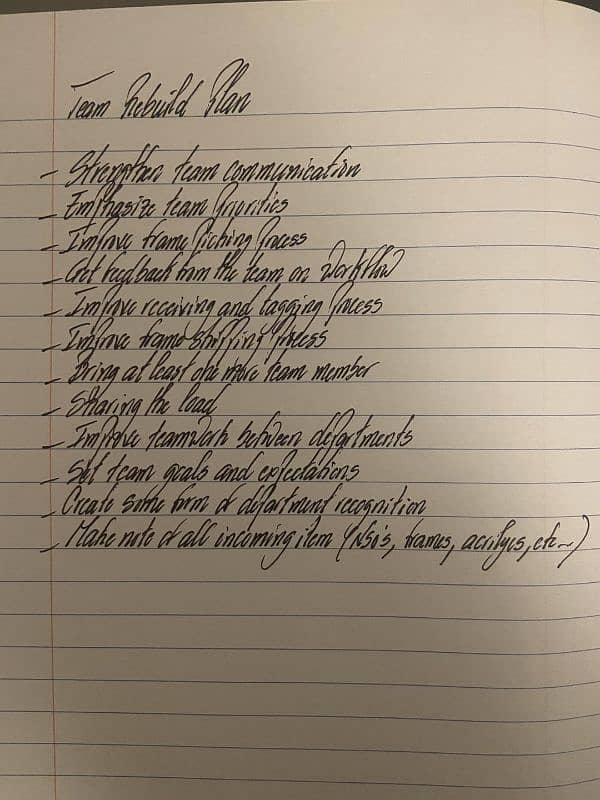 Team Rebuild Plan
- Strengthen team communication
- Emphasize team priorities
- Improve frame picking process
- Get feedback from the team on workflow
- Improve receiving and tagging process
- Improve frame stuffing process
- Bring at least one more team member
- Sharing the load
- Improve teamwork between departments
- Set team goals and expectations
- Create some form of department recognition
- Make note of all incoming item (NSO's, frames, acrilycs, etc~)